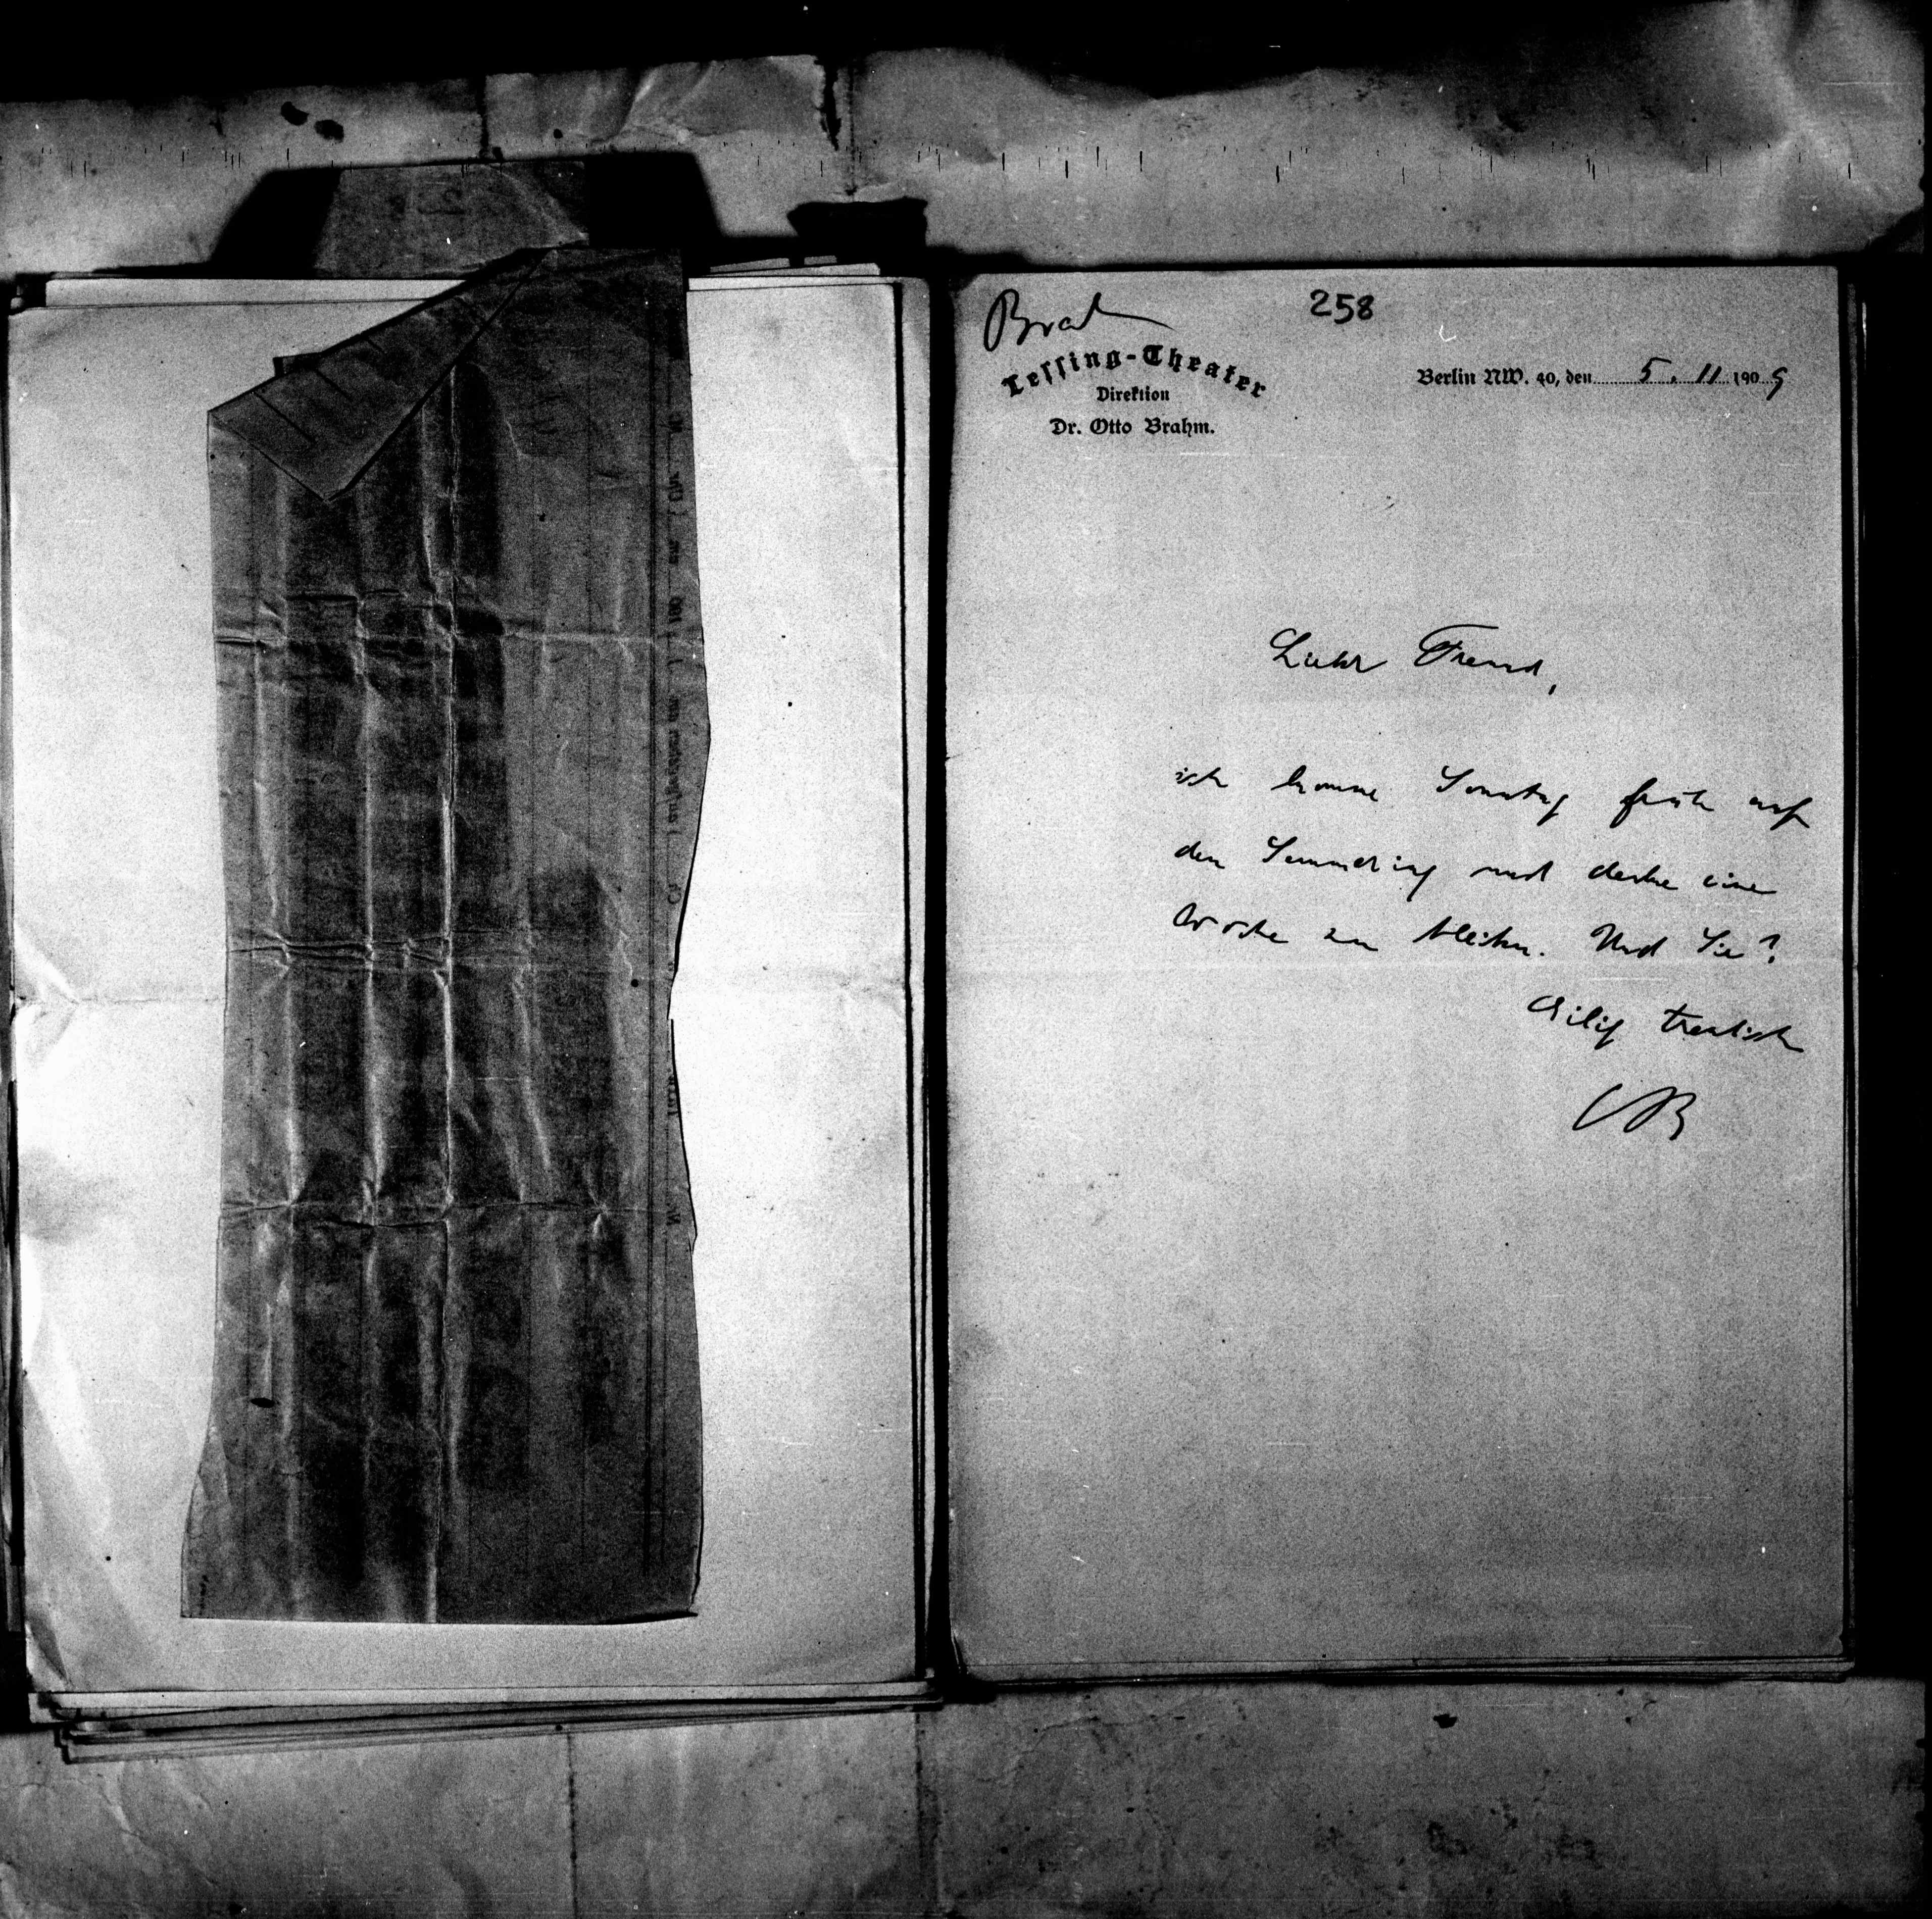 Brahm
258
Lessing-Theater
Direktion
Dr. Otto Brahm.
Berlin NW. 40, den 5. 11 1909
Lieber Freund,
ich komme Sonntag früh auf
den Semmering und denke eine
Woche zu bleiben. Und Sie?
Eilig treulich
OB